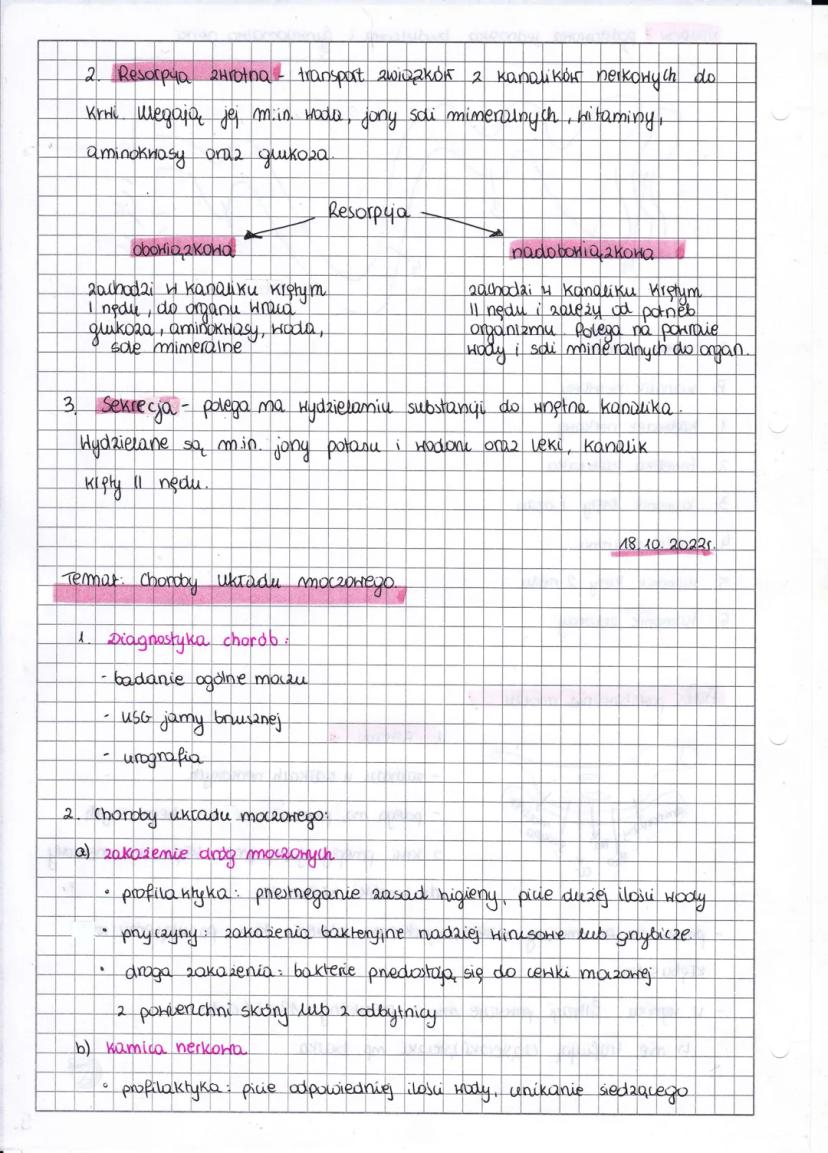 2. Resorpcja zwrotna - transport związków z kanalików nerkowych do
krwi. Ulegają jej m.in. woda, jony soli mineralnych, witaminy,
aminokwasy oraz glukoza.
Resorpcja
obowiązkowa
zachodzi w kanaliku krętym
I rzędu, do organu wraca
glukoza, aminokwasy, woda,
sole mineralne
nadobowiązkowa
zachodzi w kanaliku krętym
II rzędu i zależy od potrzeb
organizmu. Polega na powrocie
wody i soli mineralnych do organ.
3. Sekrecja - polega na wydzielaniu substancji do wnętrza kanalika.
Wydzielane są m.in. jony potasu i wodoru oraz leki, kanalik
kręty II rzędu.
18.10.2022r.
Temat: Choroby układu moczowego.
1. Diagnostyka chorób:
- badanie ogólne moczu
- USG jamy brzusznej
- urografia
2. Choroby układu moczowego:
a) zakażenie dróg moczowych
• profilaktyka: przestrzeganie zasad higieny, picie dużej ilości wody
• przyczyny: zakażenia bakteryjne rzadziej wirusowe lub grzybicze.
• droga zakażenia: bakterie przedostają się do cewki moczowej
z powierzchni skóry lub z odbytnicy
b) kamica nerkowa
• profilaktyka: picie odpowiedniej ilości wody, unikanie siedzącego